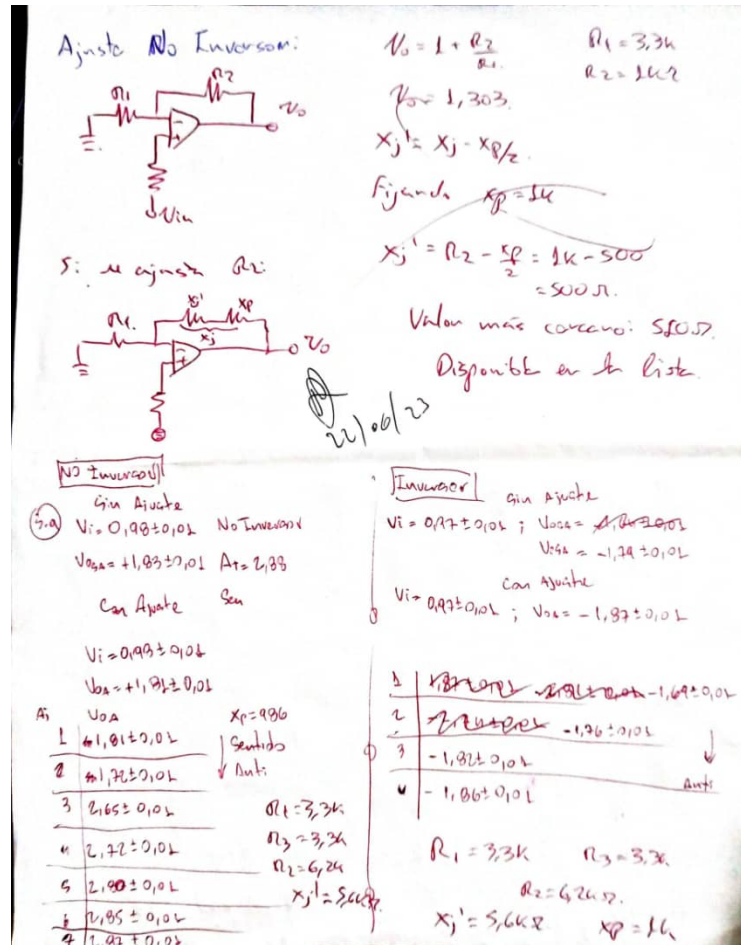 Ajuste No Inversor:
R1
R2
Vo
Vin
Vo = 1 + R2/R1
R1 = 3,3k
R2 = 1kΩ
Vo = 1,303.
Xj' = Xj - XP/2
Fijando XP = 1k
Xj' = R2 - XP/2 = 1k - 500
= 500 Ω.
Valor más cercano: 510Ω.
Disponible en la lista.
Si se ajusta R2:
Xj'
XP
R1
Xj
Vo
22/06/23
No Inversor
Sin Ajuste
5.a
Vi = 0,98±0,01 No Inversor
VOSA = +1,83±0,01
Con Ajuste
Vi = 0,98±0,01
VOA = +1,81±0,01
VOA
XP = 986
1 1,81±0,01
Sentido
2 1,72±0,01
Anti
3 2,65±0,01
4 2,72±0,01
5 2,80±0,01
6 2,85±0,01
7 2,92±0,01
R1 = 3,3k
R3 = 3,3k
R2 = 6,2k
Xj' = 5,6kΩ
Inversor
Sin Ajuste
Vi = 0,97±0,01 ; VOSA =
VOSA = -1,79±0,01
Con Ajuste
Vi = 0,97±0,01 ; VOA = -1,87±0,01
1 -1,69±0,01
2 -1,76±0,01
3 -1,82±0,01
4 -1,86±0,01
Anti
R1 = 3,3k R3 = 3,3k
R2 = 6,2kΩ.
Xj' = 5,6kΩ XP = 1k